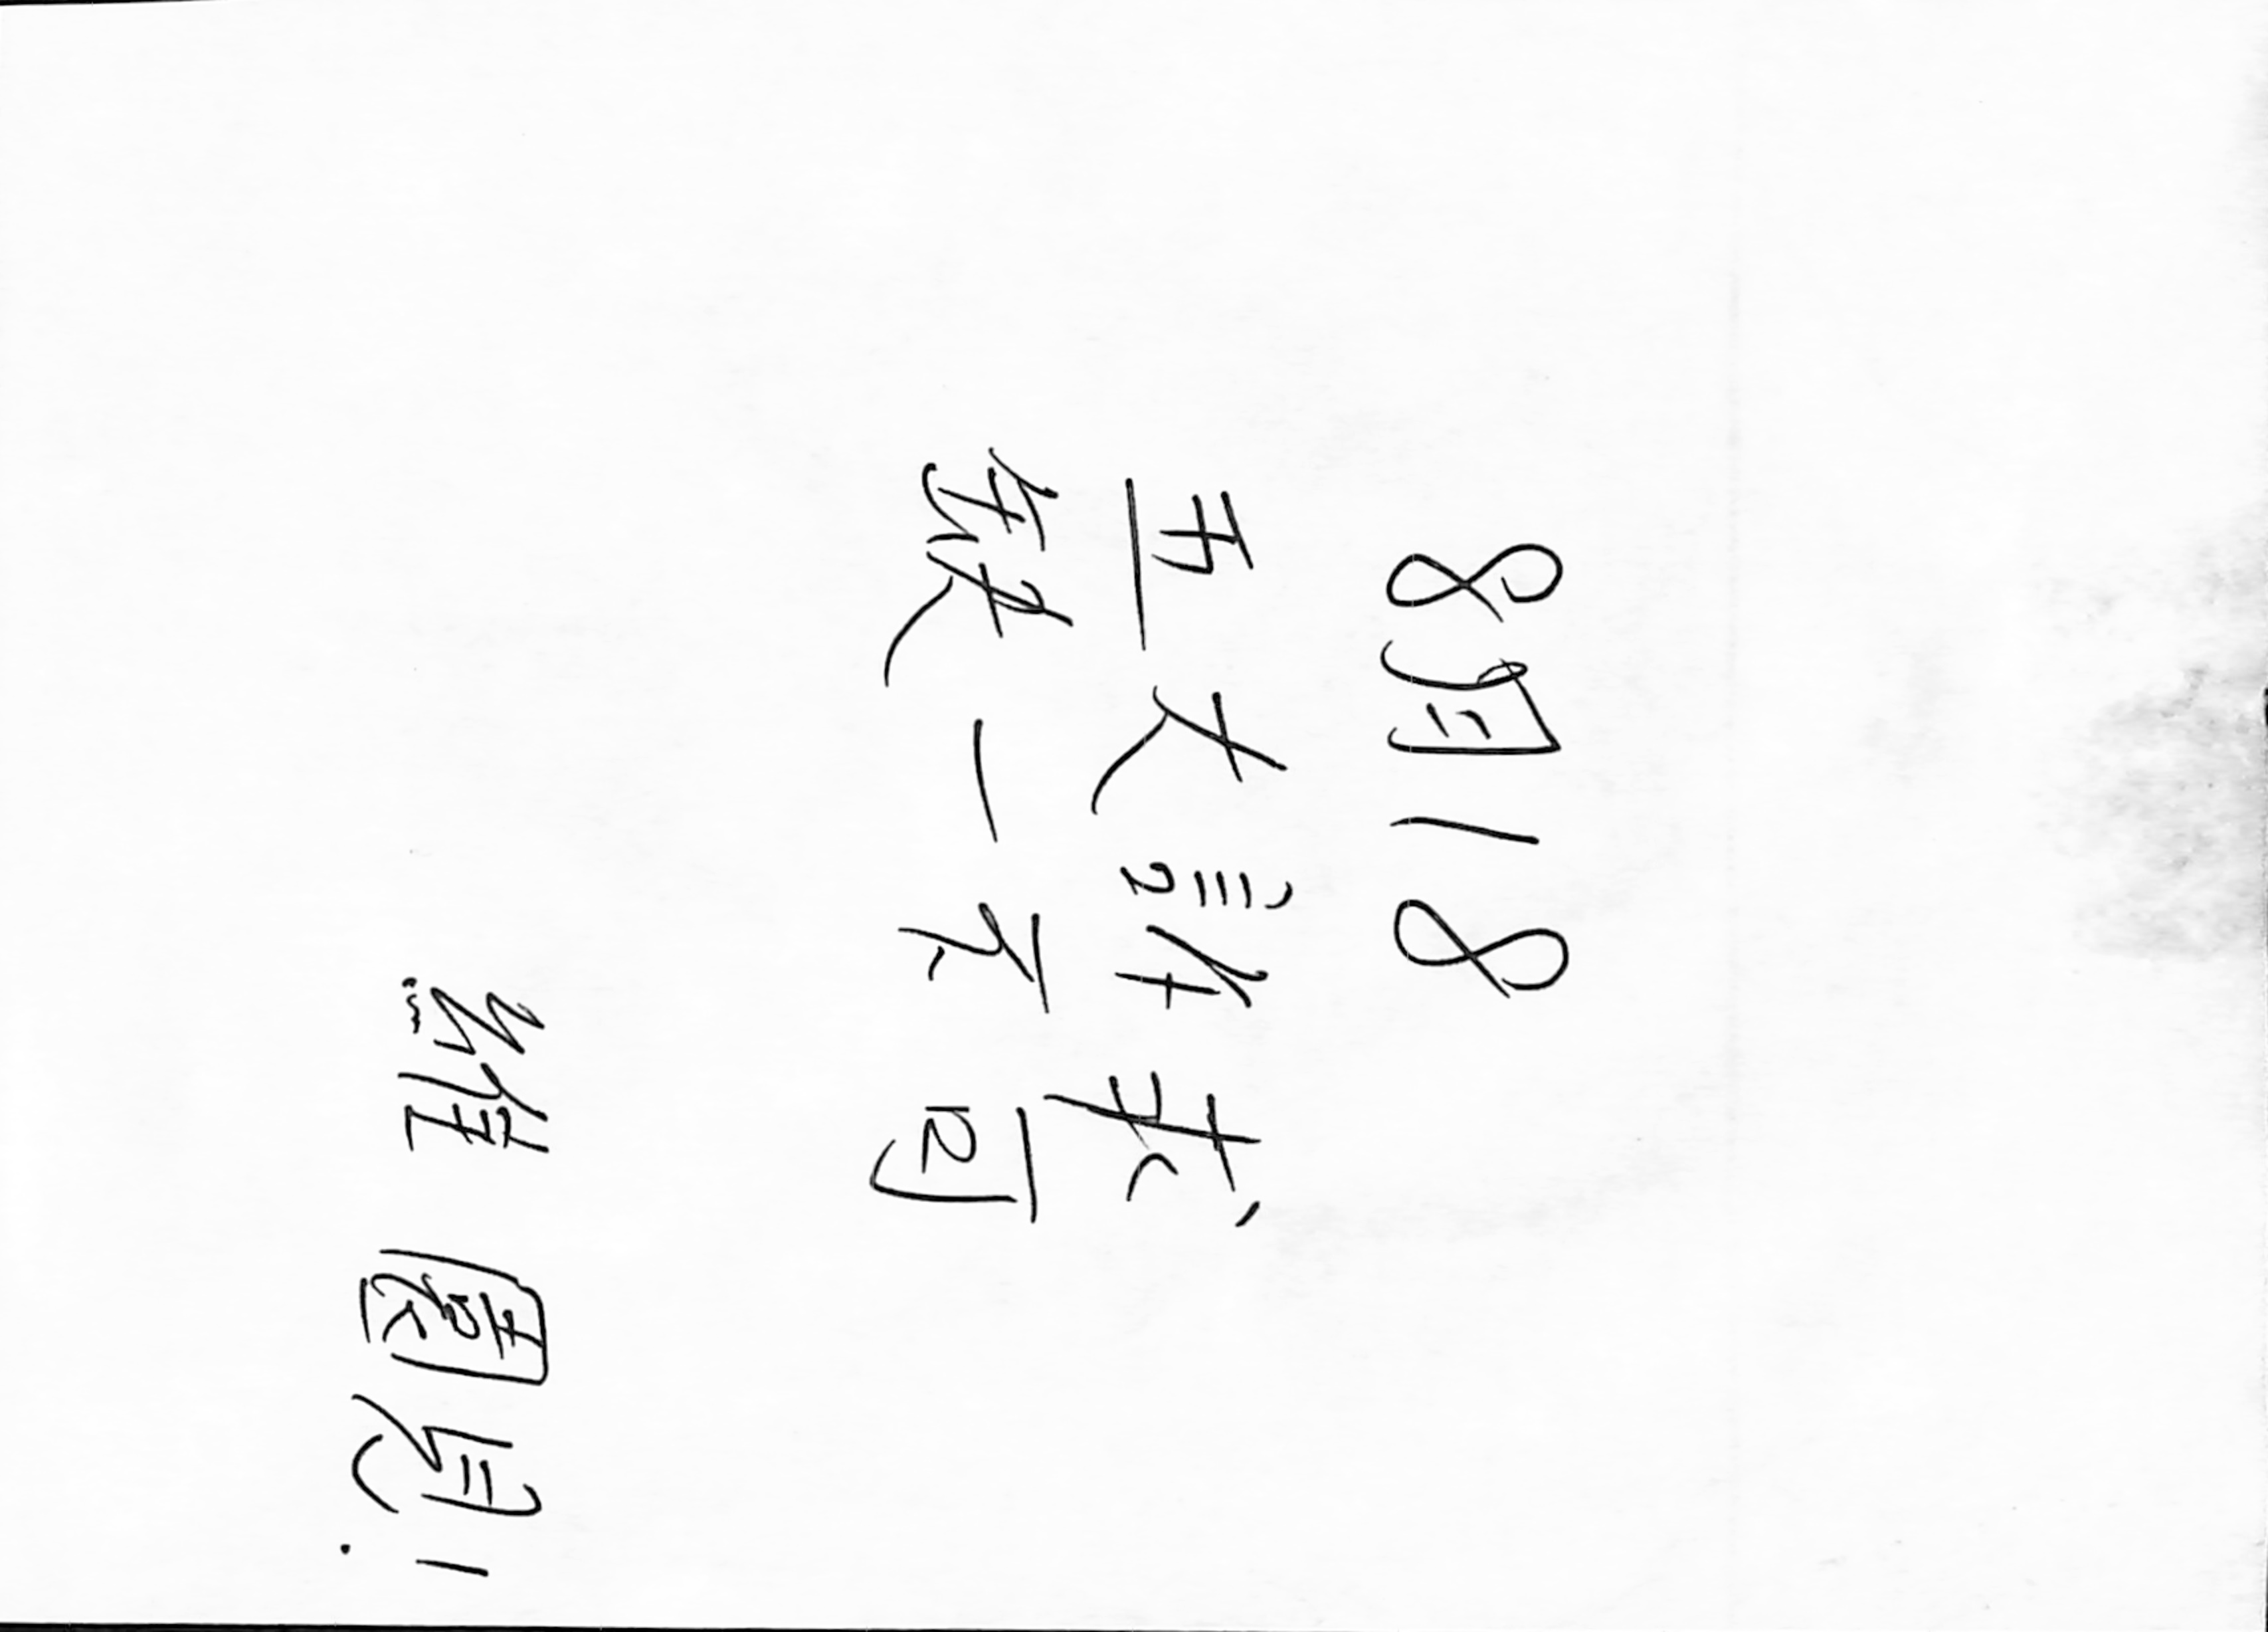 8月18
五大訴求
缺一不可
維園見!